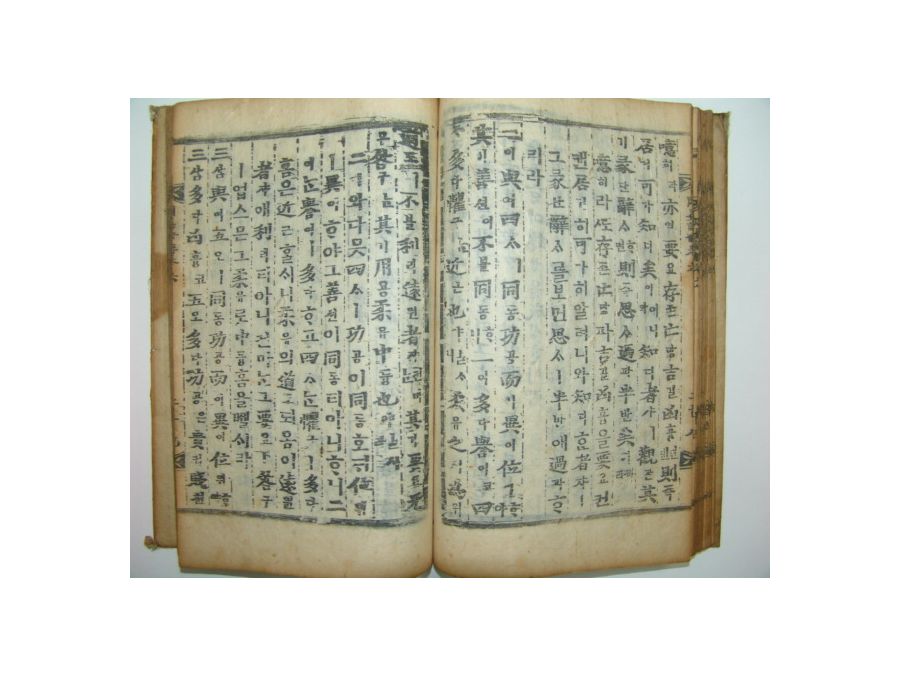 噫희라亦역要요存존亡망吉길凶흉則즉
居거可가知디矣의어니와知디者쟈ㅣ觀관其기
彖단辭ᄉᆞ則즉思ᄉᆞ過과半반矣의
噫희라 存존亡망과吉길凶흉을要요컨
댄居거히可가히알려니와知디者쟈ㅣ
그彖단辭ᄉᆞᄅᆞᆯ보면思ᄉᆞㅣ半반애過과ᄒᆞ
리라
二이與여四ᄉᆞㅣ同동功공而이異이位위ᄒᆞ야
其기善션이不블同동 二이多다譽예코四
多다懼구 近근也야 柔유之지爲위
道도ㅣ不블利리遠원者쟈 其기要요无
咎구ᄂᆞᆫ其기用용柔유中듕也야
二이와다ᄆᆞᆺ四ᄉᆞㅣ功공이同동호ᄃᆡ位위
ㅣ異이ᄒᆞ야그善션이同동티아니ᄒᆞ니二
이ᄂᆞᆫ譽예ㅣ多다ᄒᆞ고四ᄉᆞᄂᆞᆫ懼구ㅣ多다
홈은近근ᄒᆞᆯᄉᆡ니柔유의道도ㅣ되옴이遠원
者쟈애利리티아니컨마ᄂᆞᆫ그要요ㅣ咎구
ㅣ업스믄그柔유로中듕홈을 
三삼與여五오ㅣ同동功공而이異이位위ᄒᆞ
三삼多다凶흉코五오多다功공은貴귀賤쳔